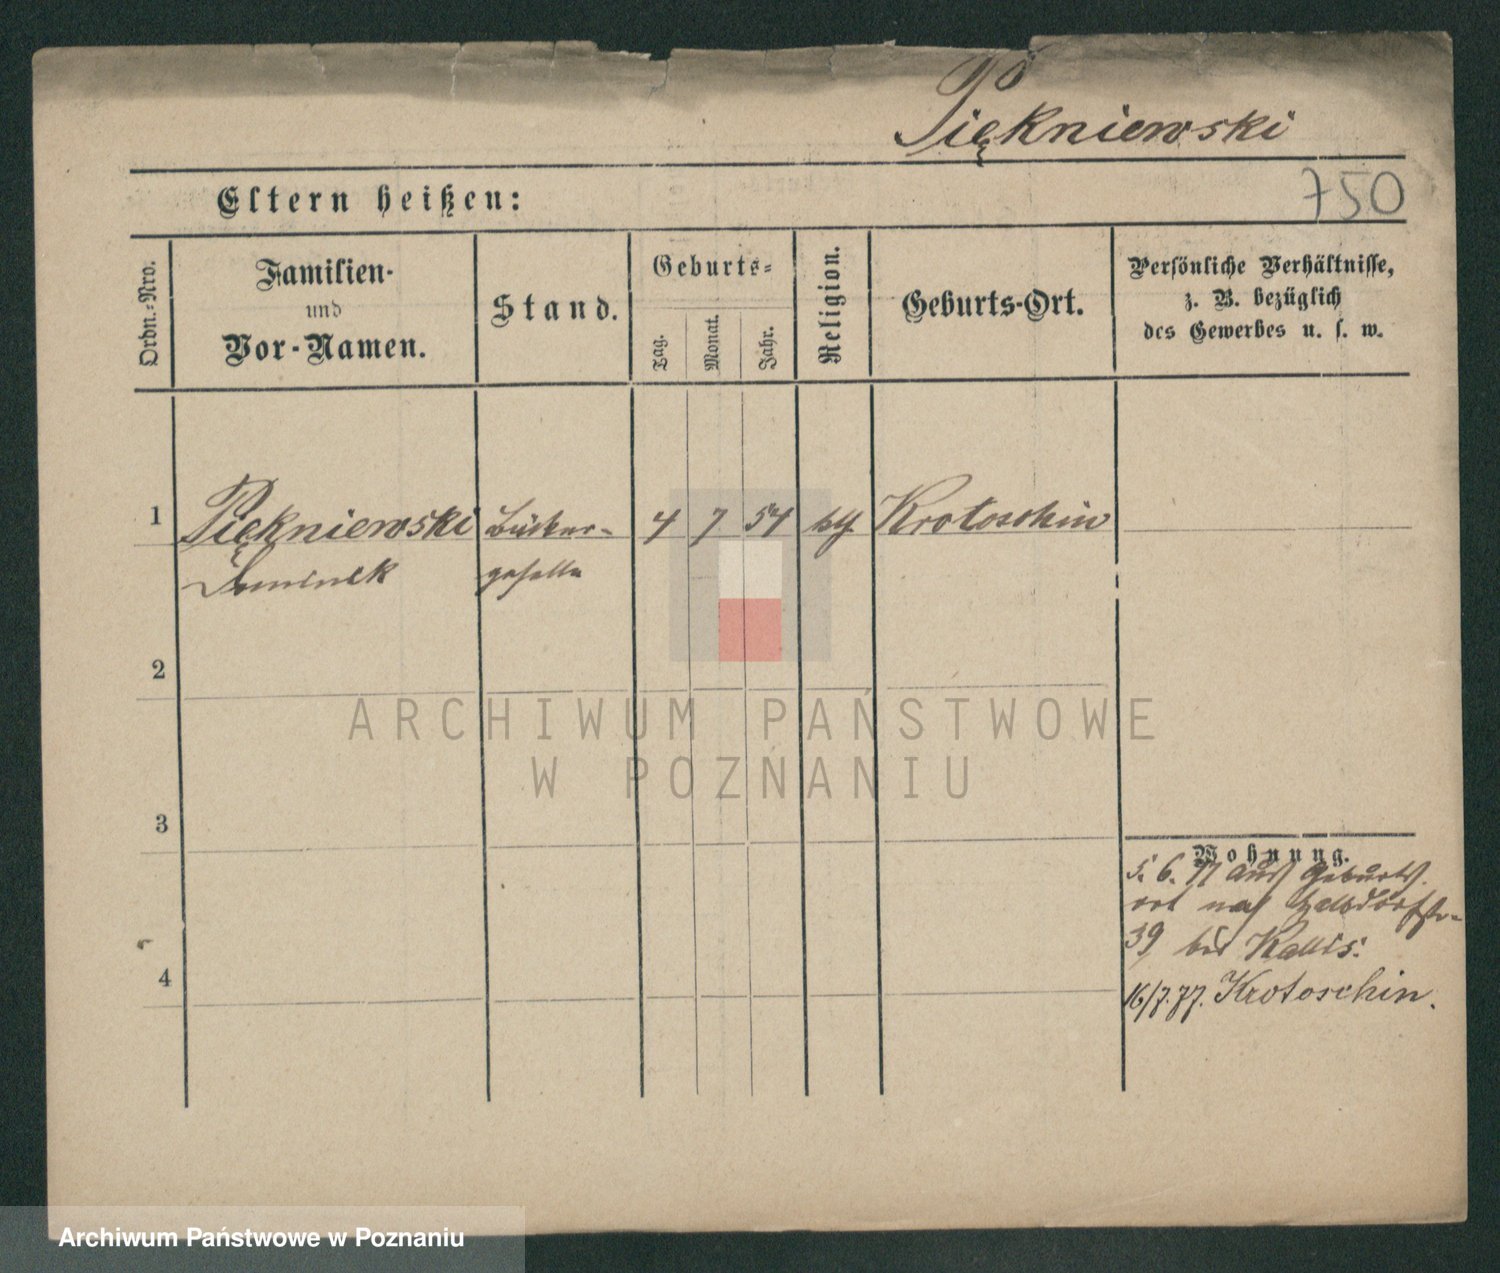 Piękniewski
Eltern heißen:
750
Ordn.-Nro.
Familien-
und
Vor-Namen.
Stand.
Geburts-
Tag.
Monat.
Jahr.
Religion.
Geburts-Ort.
Persönliche Verhältnisse,
z. B. bezüglich
des Gewerbes u. s. w.
1 Piękniewski Bäcker- 4 7 54 Krotoschin
geselle
2
3
4
Wohnung.
5. 6. 77 aus Geburts-
ort nach
39, bei
16/7. 77. Krotoschin.
ARCHIWUM PAŃSTWOWE
W POZNANIU
Archiwum Państwowe w Poznaniu